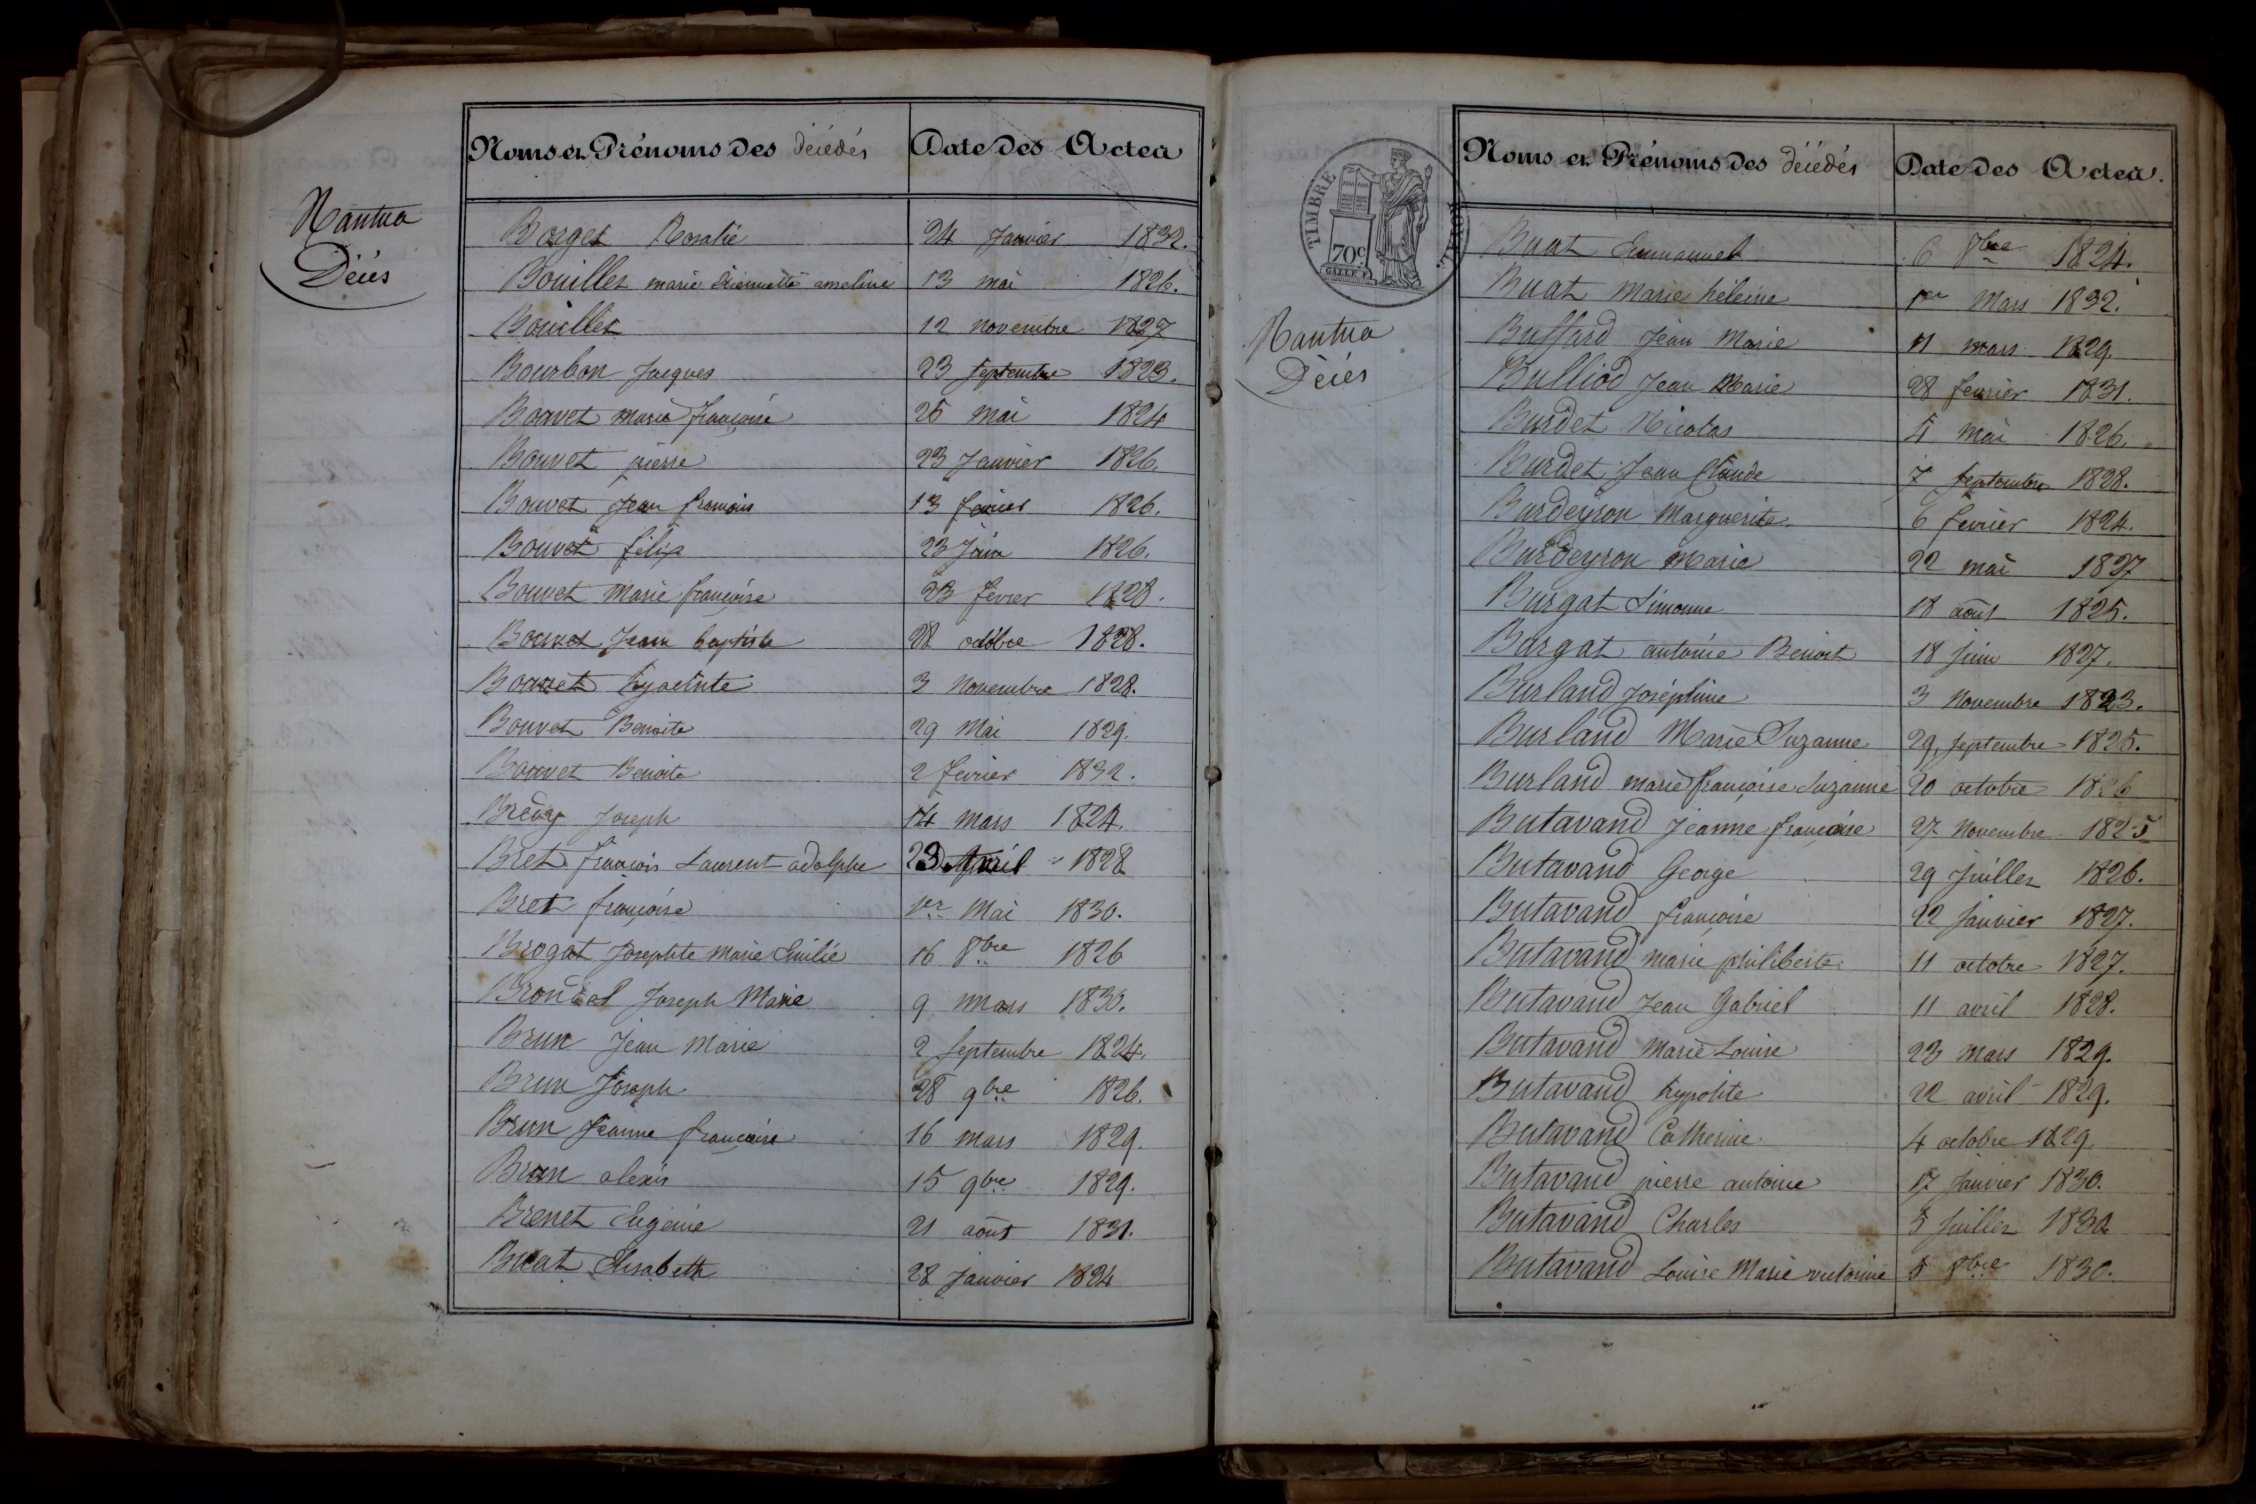 Nantua
Décés
Noms et Prénoms des décédés Date des Actes
Borget Rosalie 24 Janvier 1832.
Bouillet marie étiennette ameline 13 mai 1826.
Bouillet 12 novembre 1827
Bourbon Jacques 23 Septembre 1823.
Bouvet marie françoise 26 mai 1824
Bouvet pierre 23 Janvier 1826.
Bouvet Jean francois 13 février 1826.
Bouvet félix 23 Juin 1826.
Bouvet Marie françoise 23 févrer 1828.
Bouvet Jean baptiste 28 octobre 1828.
Bouvet hyacinte 3 Novembre 1828.
Bouvet Benoite 29 Mai 1829.
Bouvet Benoite 2 fevrier 1832.
Joseph 14 mars 1824.
Bret françois Laurent adolphe 23 Avril 1828
Bret françoise 1er Mai 1830.
Brogat Josephte Marie Emilie 16 8bre 1826
Joseph Marie 9 mars 1830.
Brun Jean Marie 2 Septembre 1824.
Brun Joseph 28 9bre 1826.
Brun Jeanne françoise 16 mars 1829.
Brun alexis 15 9bre 1829.
Brenet Eugénie 21 août 1831.
Buat Elisabeth 28 Janvier 1824
TIMBRE ROYAL
70c
Nantua
Décés
Noms et Prénoms des décédés Date des Actes.
Buat Emmanuel 6 8bre 1824.
Buat Marie héleine 1er Mars 1832.
Buffard Jean Marie 11 mars 1829
Bulliod Jean Marie 28 fevrier 1831.
Burdet Nicolas 5 Mai 1826.
Burdet Jean Claude 7 Septembre 1828.
Burdeyron Marguerite 6 fevrier 1824.
Burdeyron Marie 22 mai 1827
Burgat Simonne 18 août 1825.
Burgat antoine Benoit 18 Juin 1827.
Burland Joséphine 3 Novembre 1823.
Burland Marie Suzanne 29 Septembre 1825.
Burland marie françoise Suzanne 20 octobre 1826
Butavand Jeanne françoise 27 Novembre 1825
Butavand George 29 Juillet 1826.
Butavand françoise 22 Janvier 1827.
Butavand marie philiberte 11 octobre 1827.
Butavand Jean Gabriel 11 avril 1828.
Butavand Marie Louise 23 mars 1829.
Butavand hypolite 22 avril 1829.
Butavand Catherine 4 octobre 1829
Butavand pierre antoine 17 Janvier 1830.
Butavand Charles 5 Juillet 1830
Butavand Louise Marie victorine 5 8bre 1830.